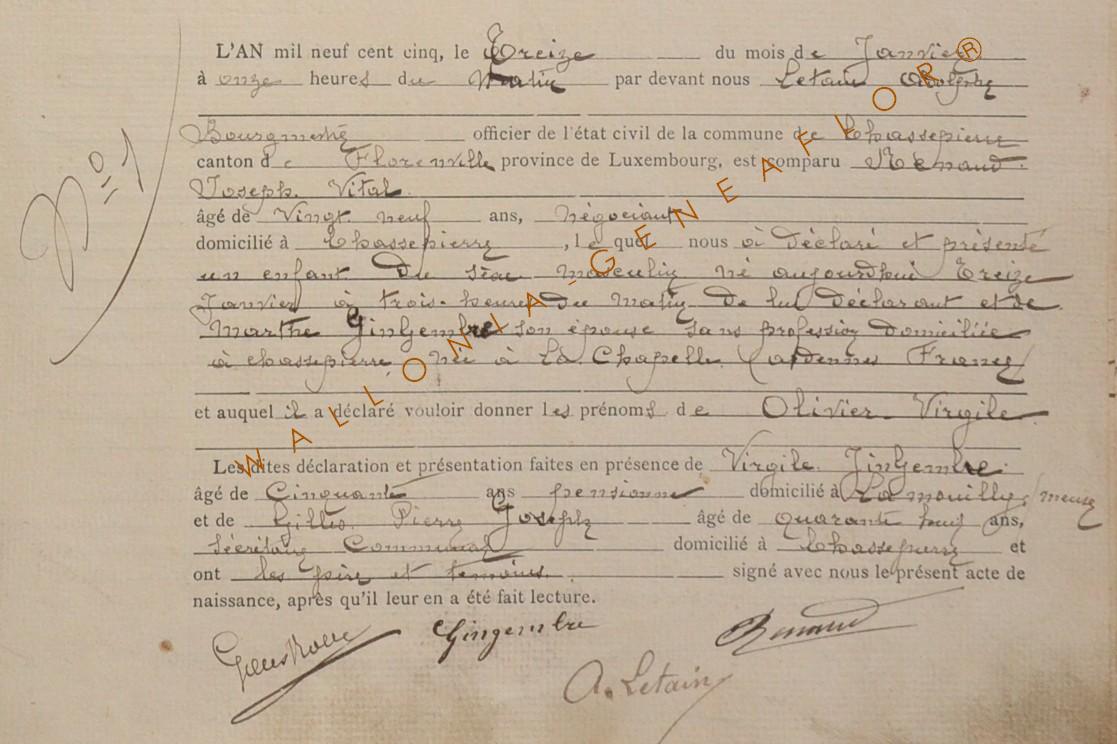 L'AN mil neuf cent cinq, le Treize du mois de Janvier
à onze heures du Matin par devant nous Letain Adolphe
Bourgmestre officier de l'état civil de la commune de Chassepierre
canton de Florenville province de Luxembourg, est comparu Renaud
Joseph. Vital.
N° 1
âgé de Vingt neuf ans, négociant
domicilié à Chassepierre, le quel nous à déclaré et présenté
un enfant Du sèxe masculin né aujourdhui Treize
Janvier à trois heures Du Matin De lui Déclarant et de
Marthe GinGembre son épouse sans profession Domiciliée
à chassepierre née à La Chapelle (ardennes France)
et auquel il a déclaré vouloir donner les prénoms de Olivier Virgile
Les dites déclaration et présentation faites en présence de Virgile GinGembre
âgé de Cinquante ans pensionné domicilié à Lamouilly (meuse
et de Pierre Joseph âgé de quarante ans,
Sécrétaire Communal domicilié à Chassepierre et
ont les père et temoins. signé avec nous le présent acte de
naissance, après qu'il leur en a été fait lecture.
Gingembre Renaud
A. Letain
WALLONIA-GENEAFLOR®